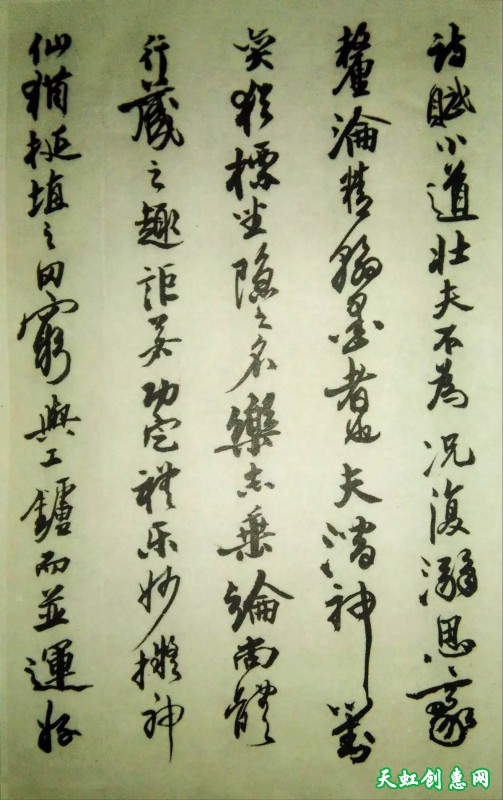 诗賦小道壮夫不為况復溺思豪
釐淪精翰墨者也夫潛神對
奕猶標坐隐之名樂志垂綸尚體
行藏之趣詎若功定禮乐妙擬神
仙猶埏埴之罔窮與工鑪而並運好
天虹创惠网